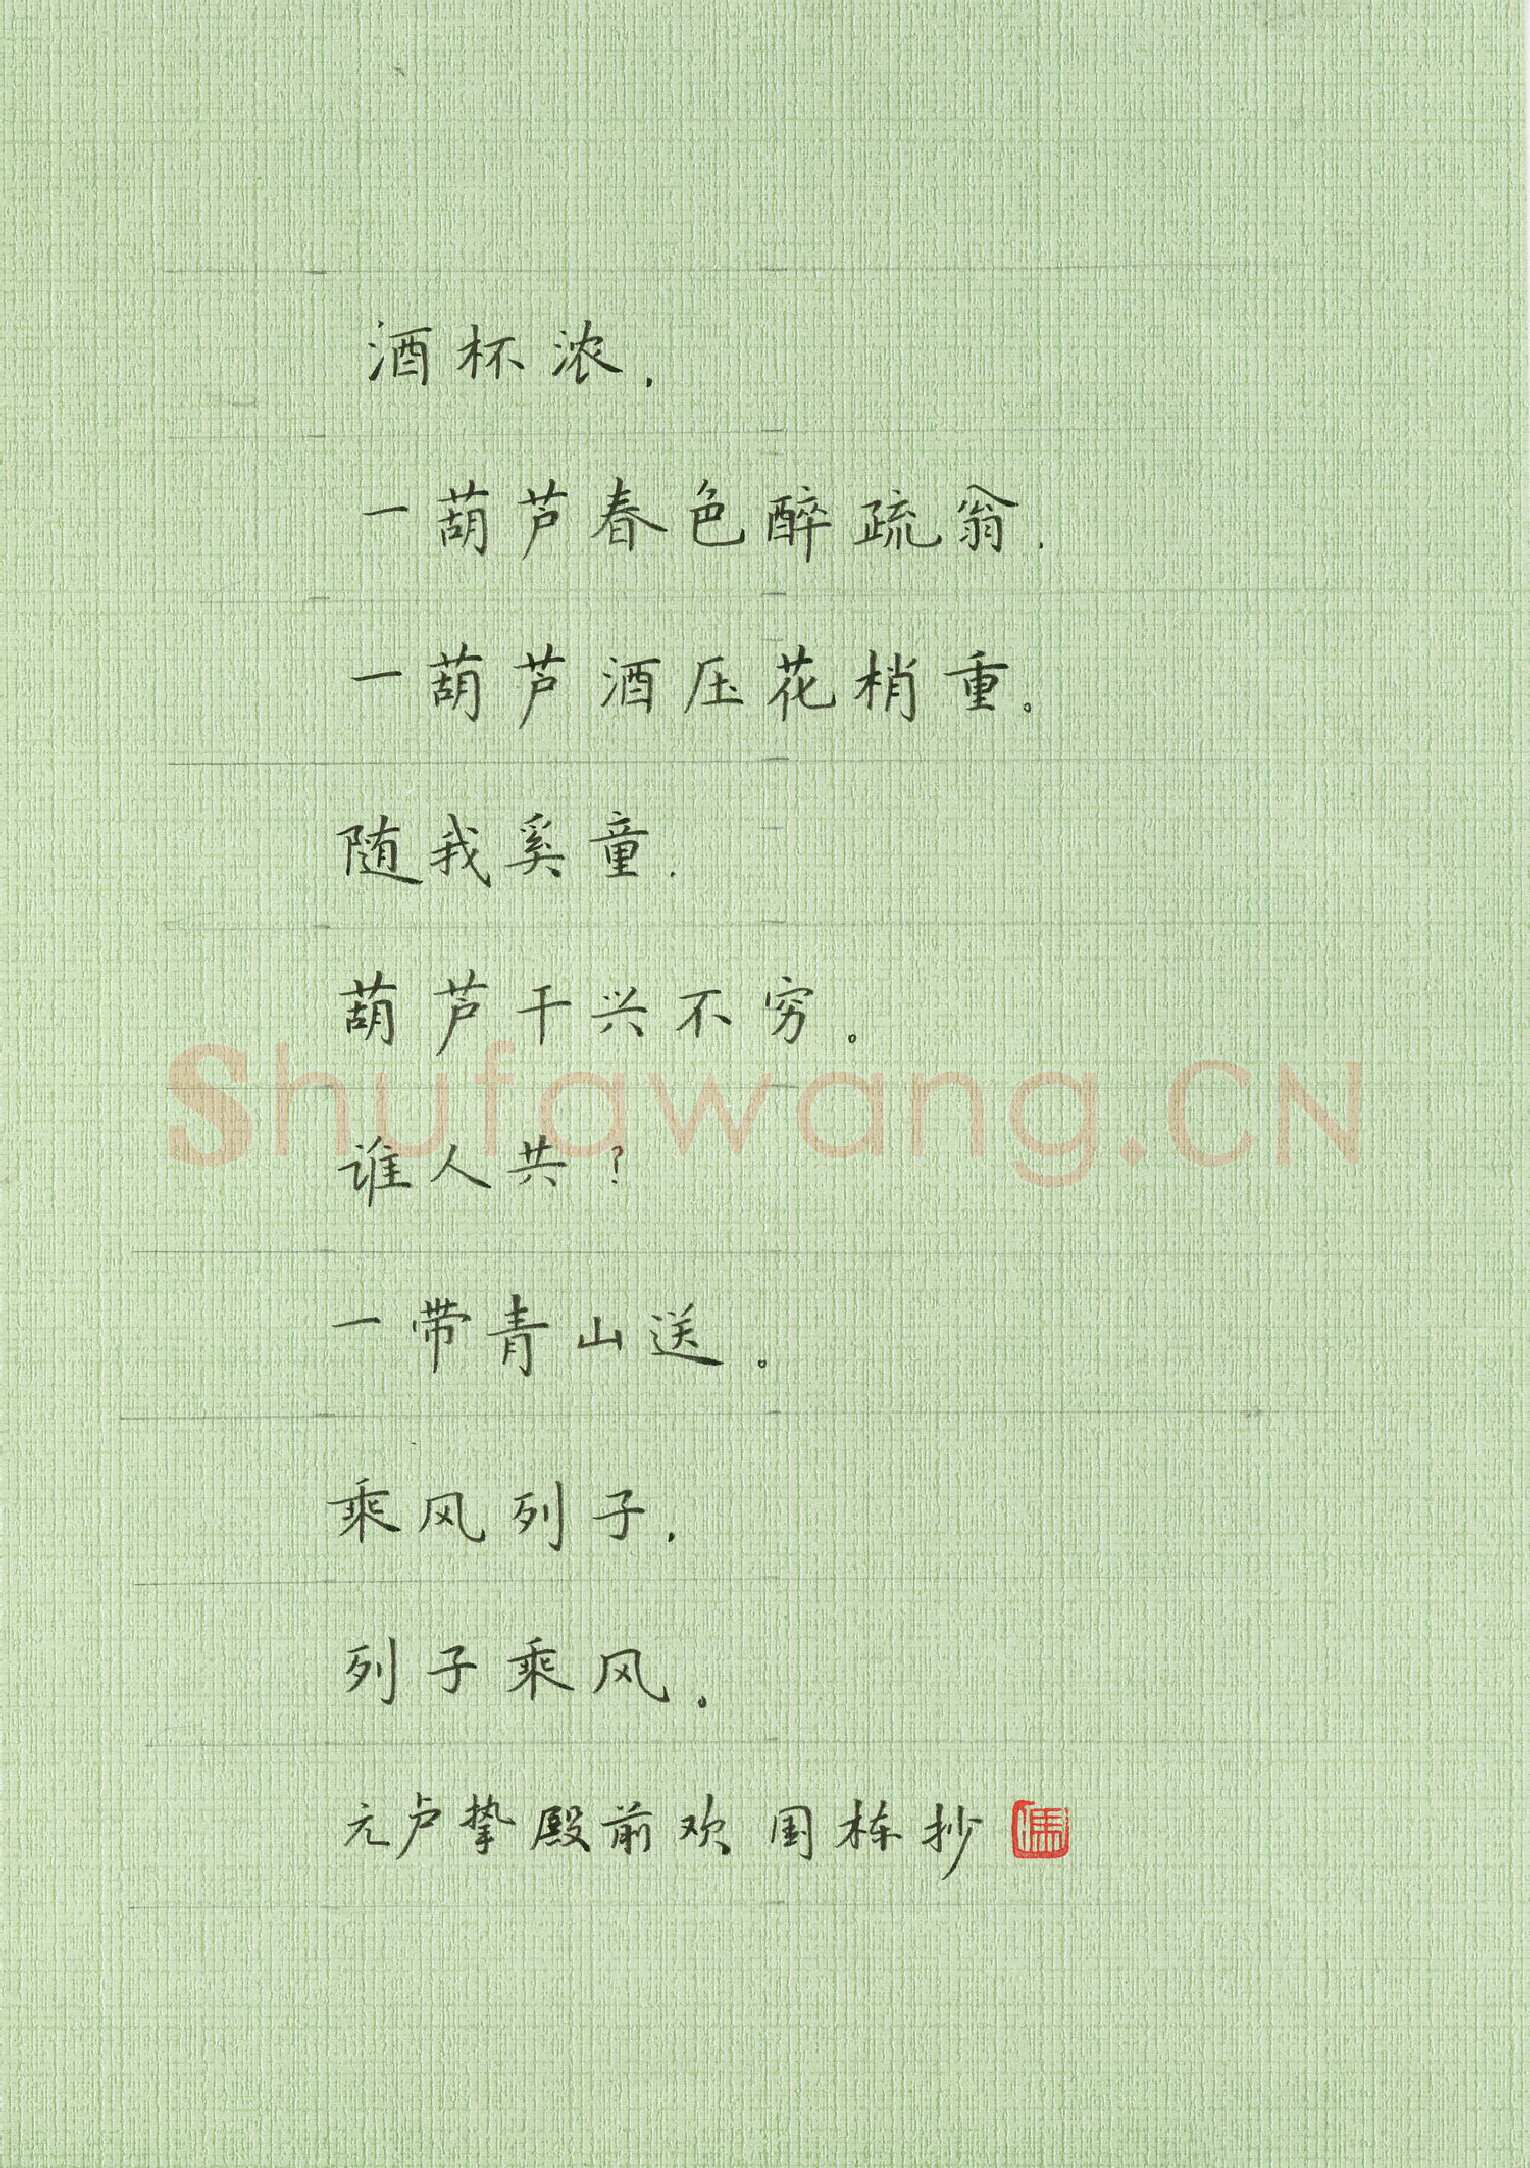 酒杯浓，
一葫芦春色醉疏翁，
一葫芦酒压花梢重。
随我奚童，
葫芦干兴不穷。
谁人共？
一带青山送。
乘风列子，
列子乘风。
元卢挚殿前欢 国栋抄
Shufawang.CN